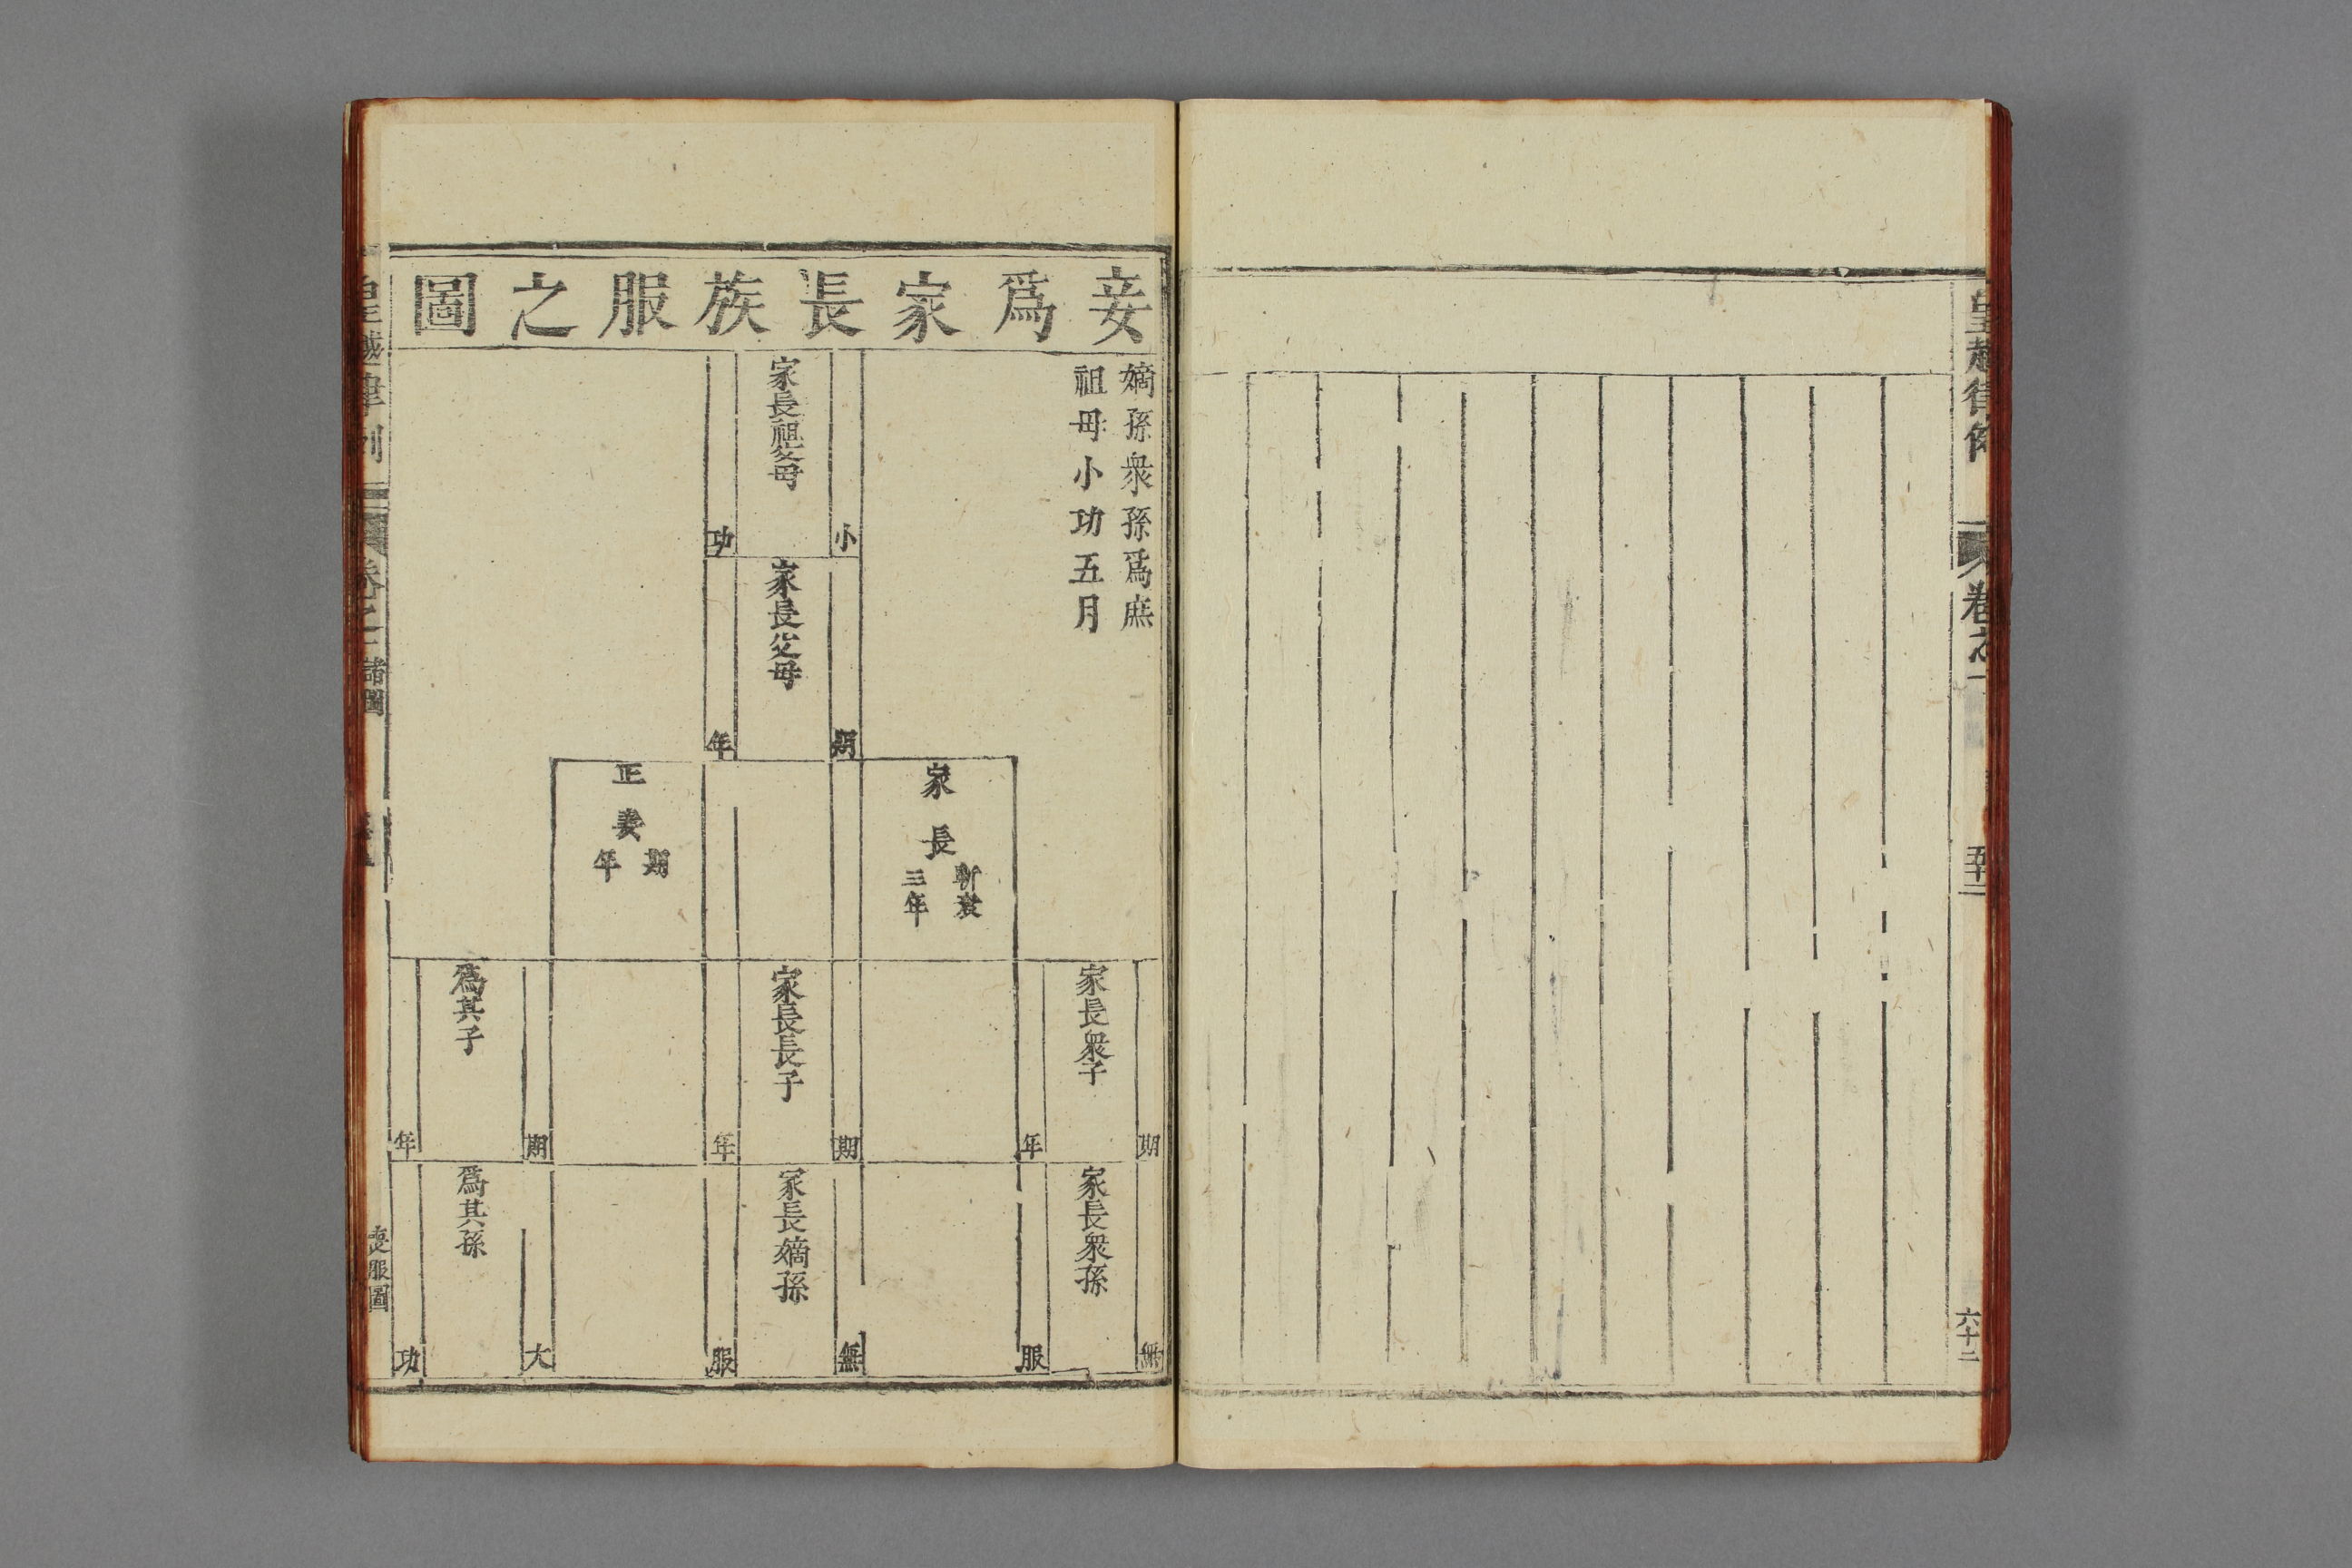 皇越律例
卷之一
六十二
妾爲家長族服之圖
嫡孫衆孫爲庶
祖母小功五月
家長祖父母
小功
家長父母
期年
家長
斬衰
三年
正妻
期年
家長衆子
期年
家長長子
期年
爲其子
期年
家長衆孫
無服
家長嫡孫
無服
爲其孫
大功
皇越律例
卷之一
諸圖
喪服圖